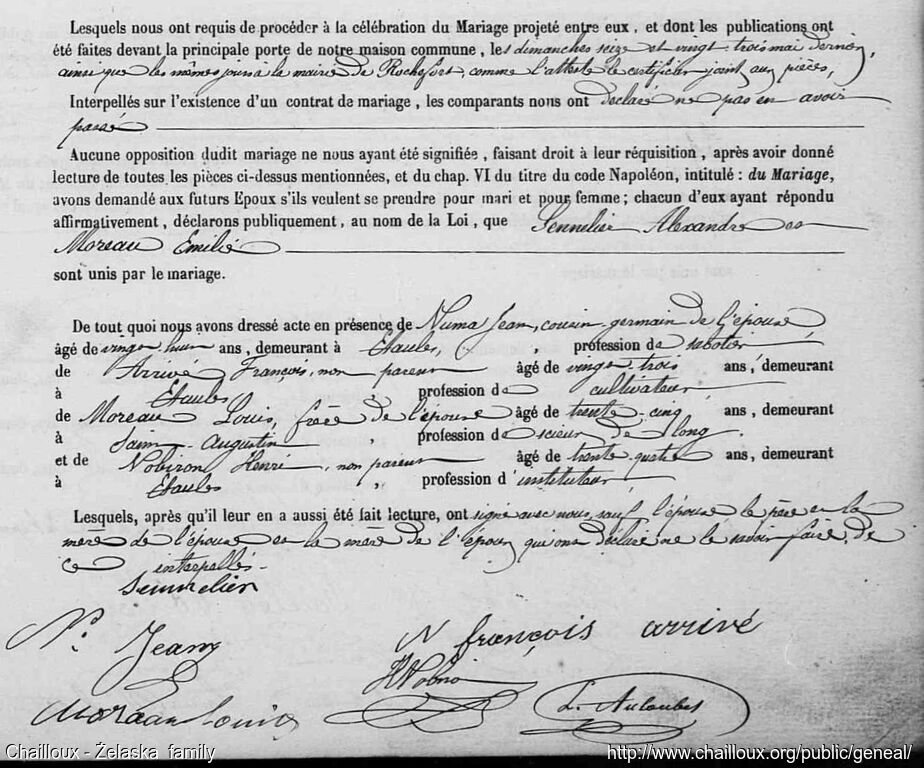 Lesquels nous ont requis de procéder à la célébration du Mariage projeté entre eux, et dont les publications ont
été faites devant la principale porte de notre maison commune, les dimanches seize et vingt-trois mai dernier,
ainsi que les mêmes jours à la mairie de Rochefort comme l'atteste le certificat joint aux pièces,
Interpellés sur l'existence d'un contrat de mariage, les comparants nous ont déclaré ne pas en avoir
passé
Aucune opposition dudit mariage ne nous ayant été signifiée, faisant droit à leur réquisition, après avoir donné
lecture de toutes les pièces ci-dessus mentionnées, et du chap. VI du titre du code Napoléon, intitulé : du Mariage,
avons demandé aux futurs Epoux s'ils veulent se prendre pour mari et pour femme; chacun d'eux ayant répondu
affirmativement, déclarons publiquement, au nom de la Loi, que Sennelier Alexandre et
Moreau Emilie
sont unis par le mariage.
De tout quoi nous avons dressé acte en présence de Numa Jean, cousin-germain de l'épouse,
âgé de vingt huit ans, demeurant à Etaules, profession de sabotier,
de Arrivé François, non parent âgé de vingt-trois ans, demeurant
à Etaules profession de cultivateur,
de Moreau Louis, frère de l'épouse âgé de trente-cinq ans, demeurant
à Saint-Augustin " profession de scieur de long.
et de Nobiron Henri, non parent âgé de trente-quatre ans, demeurant
à Etaules " profession d'instituteur,
Lesquels, après qu'il leur en a aussi été fait lecture, ont signé avec nous, sauf l'épouse le père et la
mère de l'épouse et la mère de l'époux qui ont déclaré ne le savoir faire, de
ce interpellés.
Sennelier
N. Jean
françois arrivé
Moreau Louis
Chailloux - Żelaska family
http://www.chailloux.org/public/geneal/